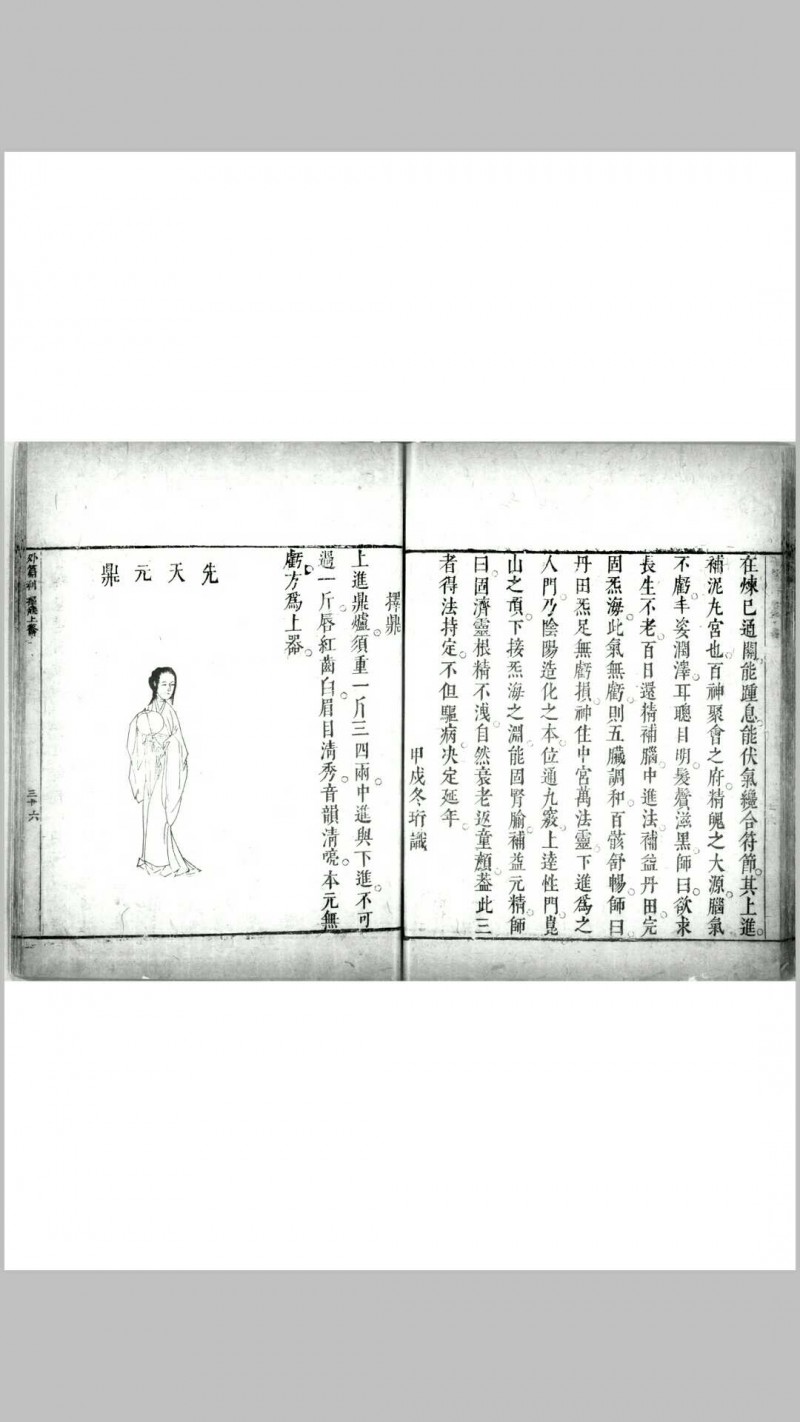 在煉已通關能踵息能伏氣纔合符節其上進
補泥丸宮也百神聚會之府精魄之大源腦氣
不虧丰姿潤澤耳聰目明髮鬢滋黑師曰欲求
長生不老百日還精補腦中進法補益丹田完
固炁海此氣無虧則五臟調和百骸舒暢師曰
丹田炁足無虧損神住中宮萬法靈下進爲之
人門乃陰陽造化之本位通九竅上達性門崑
山之頂下接炁海之淵能固腎腧補益元精師
曰固濟靈根精不洩自然衰老返童顏葢此三
者得法持定不但驅病決定延年
甲戌冬珩識
擇鼎
上進鼎爐須重一斤三四兩中進與下進不可
過一斤唇紅齒白眉目清秀音韻清喨本元無
虧方爲上器
先天元鼎
三十六